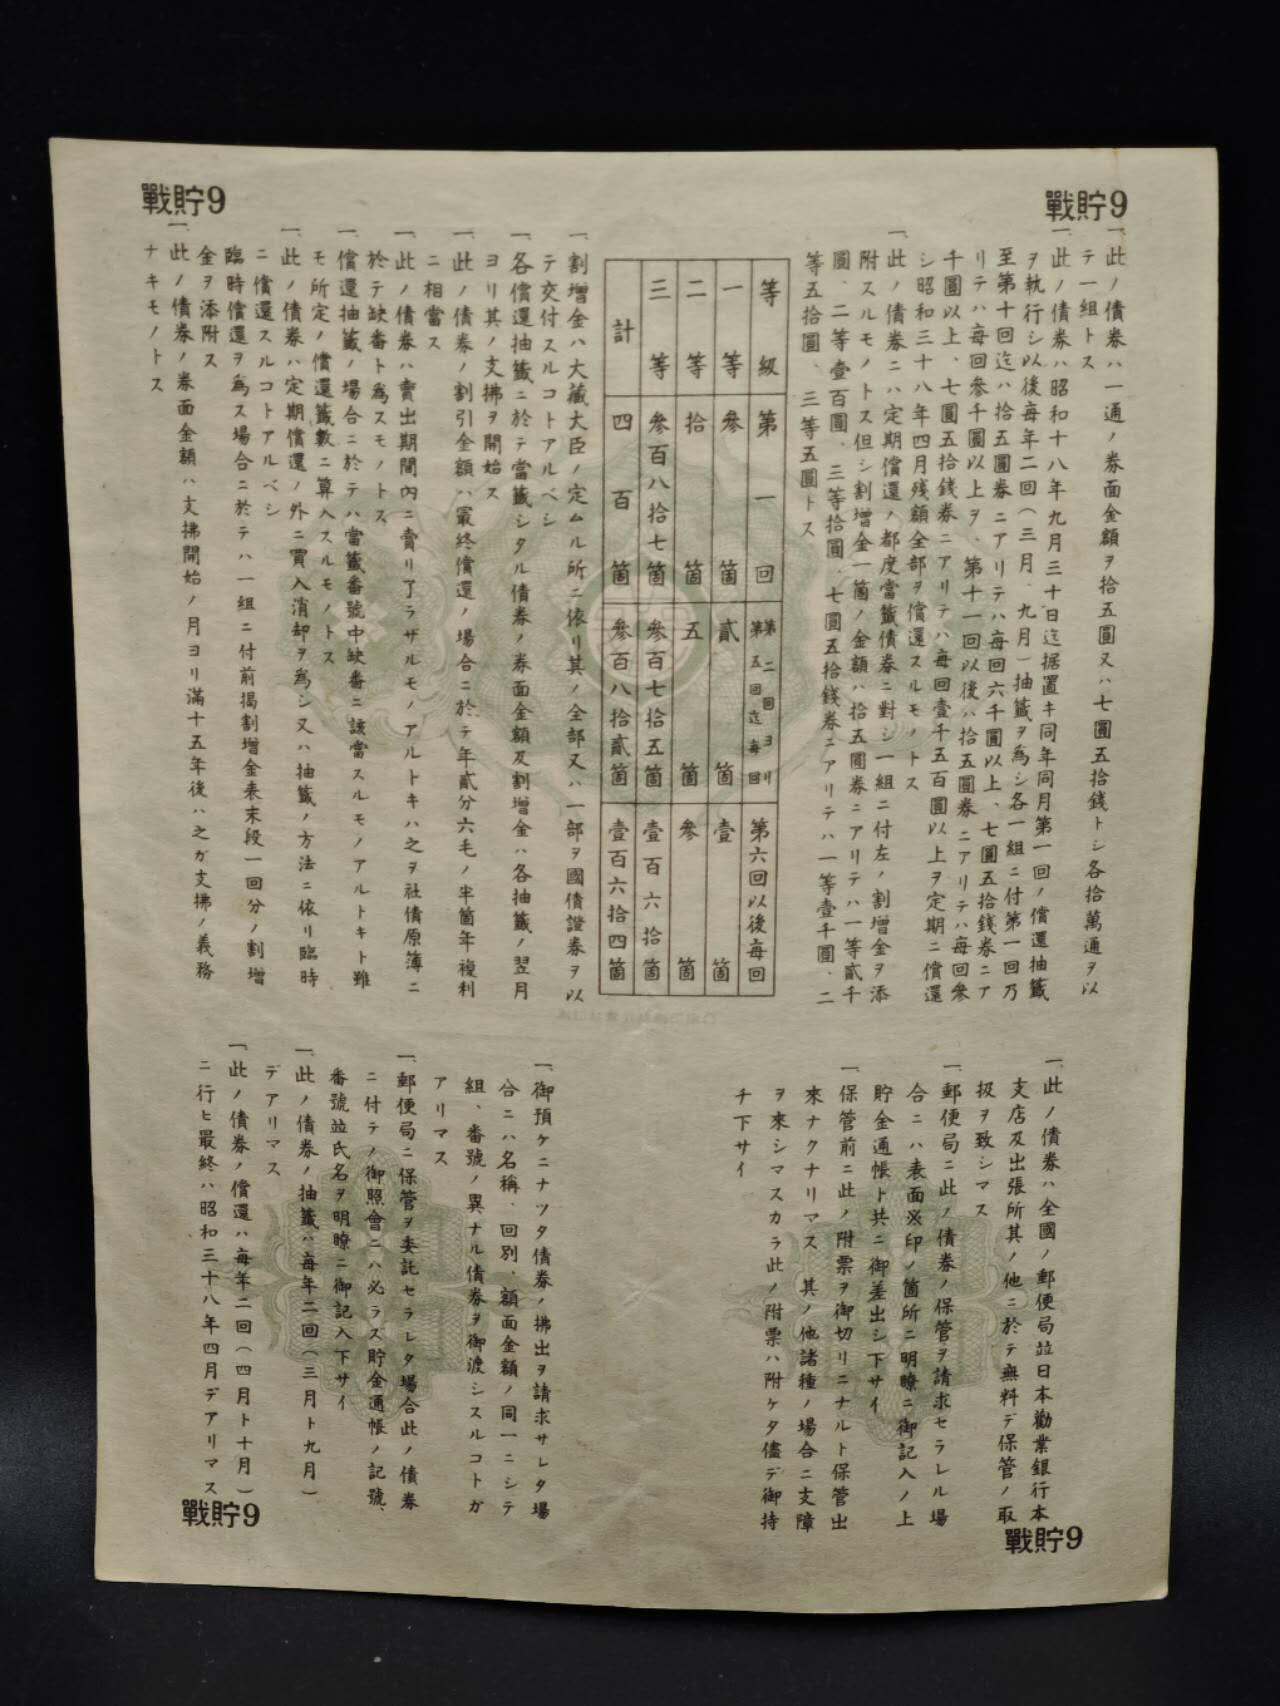 戰貯9
戰貯9
一、此ノ債券ハ一通ノ券面金額ヲ拾五圓又ハ七圓五拾錢トシ各拾萬通ヲ以
テ一組トス
一、此ノ債券ハ昭和十八年九月三十日迄据置キ同年同月第一回ノ償還抽籤
ヲ執行シ以後每年二回(三月、九月)抽籤ヲ爲シ各一組ニ付第一回乃
至第十回迄ハ拾五圓券ニアリテハ每回六千圓以上、七圓五拾錢券ニア
リテハ每回參千圓以上ヲ、第十一回以後ハ拾五圓券ニアリテハ每回參
千圓以上、七圓五拾錢券ニアリテハ每回壹千五百圓以上ヲ定期ニ償還
シ昭和三十八年四月殘額全部ヲ償還スルモノトス
一、此ノ債券ニハ定期償還ノ都度當籤債券ニ對シ一組ニ付左ノ割增金ヲ添
附スルモノトス但シ割增金一箇ノ金額ハ拾五圓券ニアリテハ一等貳千
圓、二等壹百圓、三等拾圓、七圓五拾錢券ニアリテハ一等壹千圓、二
等五拾圓、三等五圓トス
等級 第一回 第二回ヨリ第五回迄每回 第六回以後每回
一等 參箇 貳箇 壹箇
二等 拾箇 五箇 參箇
三等 參百八拾七箇 參百七拾五箇 壹百六拾箇
計 四百箇 參百八拾貳箇 壹百六拾四箇
一、割增金ハ大藏大臣ノ定ムル所ニ依リ其ノ全部又ハ一部ヲ國債證券ヲ以
テ交付スルコトアルベシ
一、各償還抽籤ニ於テ當籤シタル債券ノ券面金額及割增金ハ各抽籤ノ翌月
ヨリ其ノ支拂ヲ開始ス
一、此ノ債券ノ割引金額ハ最終償還ノ場合ニ於テ年貳分六毛ノ半箇年複利
ニ相當ス
一、此ノ債券ハ賣出期間內ニ賣リ了ラザルモノアルトキハ之ヲ社債原簿ニ
於テ缺番ト爲スモノトス
一、償還抽籤ノ場合ニ於テハ當籤番號中缺番ニ該當スルモノアルトキト雖
モ所定ノ償還籤數ニ算入スルモノトス
一、此ノ債券ハ定期償還ノ外ニ買入消却ヲ爲シ又ハ抽籤ノ方法ニ依リ臨時
ニ償還スルコトアルベシ
臨時償還ヲ爲ス場合ニ於テハ一組ニ付前揭割增金表末段一回分ノ割增
金ヲ添附ス
一、此ノ債券ノ券面金額ハ支拂開始ノ月ヨリ滿十五年後ハ之ガ支拂ノ義務
ナキモノトス
一、此ノ債券ハ全國ノ郵便局竝日本勸業銀行本
支店及出張所其ノ他ニ於テ無料デ保管ノ取
扱ヲ致シマス
一、郵便局ニ此ノ債券ノ保管ヲ請求セラレル場
合ニハ表面※印ノ箇所ニ明瞭ニ御記入ノ上
貯金通帳ト共ニ御差出シ下サイ
一、保管前ニ此ノ附票ヲ御切リニナルト保管出
來ナクナリマス 其ノ他諸種ノ場合ニ支障
ヲ來シマスカラ此ノ附票ハ附ケタ儘デ御持
チ下サイ
一、御預ケニナツタ債券ノ拂出ヲ請求サレタ場
合ニハ名稱、回別、額面金額ノ同一ニシテ
組、番號ノ異ナル債券ヲ御渡シスルコトガ
アリマス
一、郵便局ニ保管ヲ委託セラレタ場合此ノ債券
ニ付テノ御照會ニハ必ラス貯金通帳ノ記號、
番號竝氏名ヲ明瞭ニ御記入下サイ
一、此ノ債券ノ抽籤ハ每年二回(三月ト九月)
デアリマス
一、此ノ債券ノ償還ハ每年二回(四月ト十月)
ニ行ヒ最終ハ昭和三十八年四月デアリマス
戰貯9
戰貯9